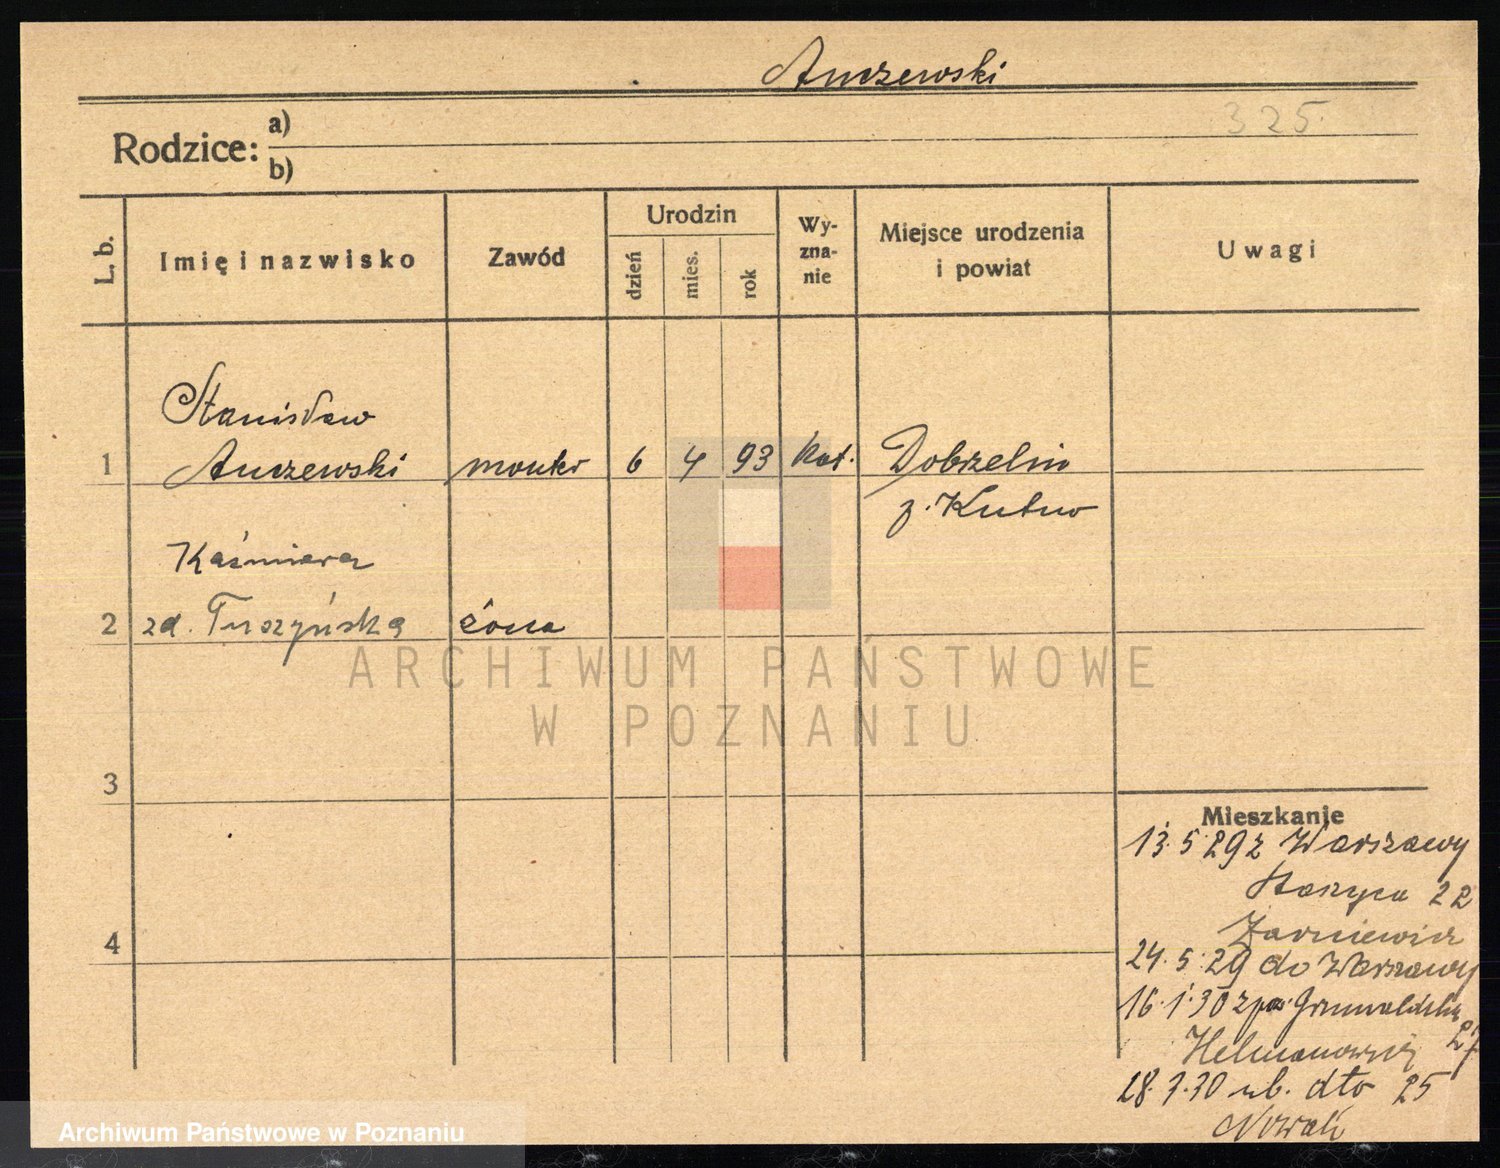 Auczewski
325
Rodzice: a)
b)
L. b.
Imię i nazwisko
Zawód
Urodzin
dzień
mies.
rok
Wy-
zna-
nie
Miejsce urodzenia
i powiat
Uwagi
Stanisław
1 Auczewski monter 6 4 93 kat. Dobrzelin
p. Kutno
Kaźmiera
2 zd. Tuszyńska żona
ARCHIWUM PAŃSTWOWE
W POZNANIU
3
Mieszkanie
13.5.29 z Warszawy
Staszyca 22
4
24.5.29 do Warszawy
16.1.30 Grunwaldzka
27
28.7.30 ub. dto 25
Nowak
Archiwum Państwowe w Poznaniu